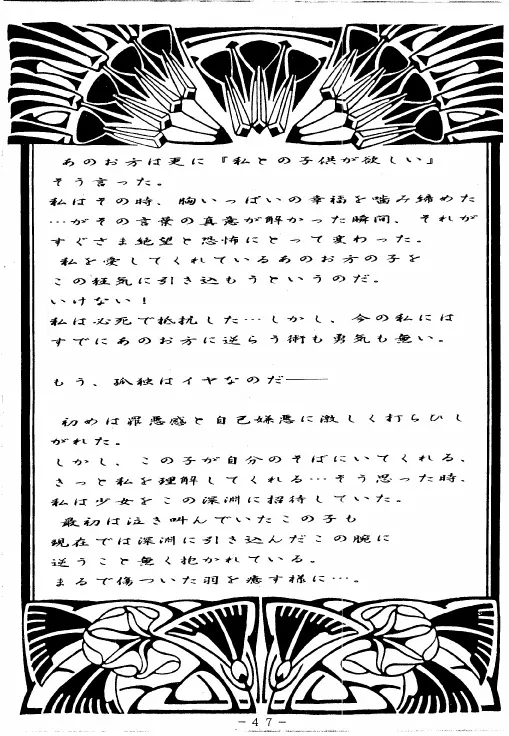 あのお方は更に『私との子供が欲しい』
そう言った。
私はその時、胸いっぱいの幸福を噛み締めた
…がその言葉の真意が解かった瞬間、それが
すぐさま絶望と恐怖にとって変わった。
私を愛してくれているあのお方の子を
この狂気に引き込もうというのだ。
いけない！
私は必死で抵抗した…しかし、今の私には
すでにあのお方に逆らう術も勇気も無い。
もう、孤独はイヤなのだ――
初めは罪悪感と自己嫌悪に激しく打ちひし
がれた。
しかし、この子が自分のそばにいてくれる、
きっと私を理解してくれる…そう思った時、
私は少女をこの深淵に招待していた。
最初は泣き叫んでいたこの子も
現在では深淵に引き込んだこの腕に
逆うこと無く抱かれている。
まるで傷ついた羽を癒す様に…。
-47-